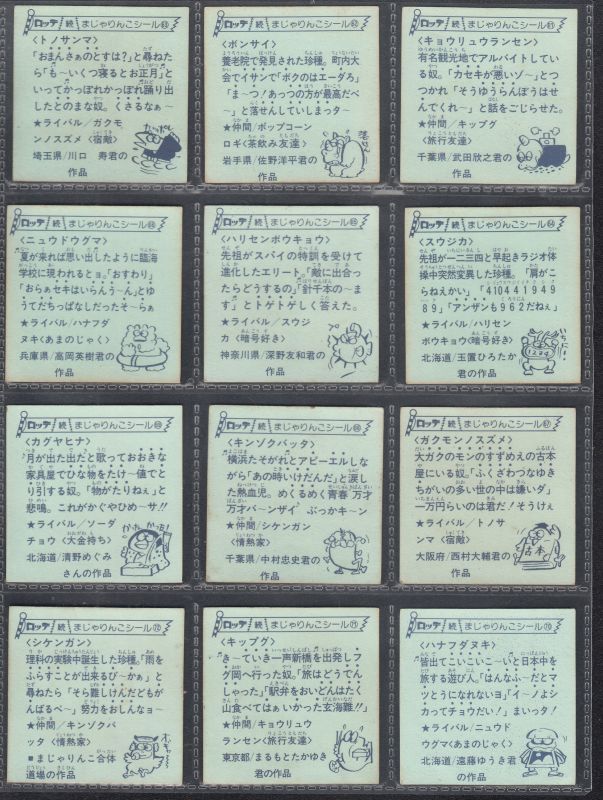 ロッテ 続 まじゃりんこシール63
〈トノサンマ〉
「おまんさぁのとすは?」と尋ねた
ら「も〜いくつ寝るとお正月」と
いってかっぽれかっぽれ踊り出
したとのまな奴。くさるなぁ〜
★ライバル/ガクモ
ンノスズメ〈宿敵〉
埼玉県/川口 寿君の
作品
ロッテ 続 まじゃりんこシール62
〈ボンサイ〉
養老院で発見された珍種。町内大
会でイサンで「ボクのはエーダろ」
「ま〜つ!あっつの方が最高だべ
〜」と落せんしていしまっタ〜
★仲間/ポップコーン
ロギ〈茶飲み友達〉
岩手県/佐野洋平君の
作品
ロッテ 続 まじゃりんこシール61
〈キョウリュウランセン〉
有名観光地でアルバイトしてい
る奴。「カセキが悪いゾ〜」とつ
つかれ「そうゆうらんぼうはせ
んでくれ〜」と話をこじらせた。
★仲間/キップグ
〈旅行友達〉
千葉県/武田欣之君の
作品
ロッテ 続 まじゃりんこシール
〈ニュウドウグマ〉
夏が来れば思い出したように臨海
学校に現われるとョ。「おすわり」
「おらぁセキはいらんう〜ん」とゆ
うてだちっぱなしだったそ〜らぁ
★ライバル/ハナフダ
ヌキ〈あまのじゃく〉
兵庫県/高岡英樹君の
作品
ロッテ 続 まじゃりんこシール65
〈ハリセンボウキョウ〉
先祖がスパイの特訓を受けて
進化したエリート。「敵に出合っ
たらどうするの」「針千本の〜ま
す」とトゲトゲしく答えた。
★ライバル/スウジ
カ〈暗号好き〉
神奈川県/深野友和君の
作品
ロッテ 続 まじゃりんこシール64
〈スウジカ〉
先祖が一二三四と早起きラジオ体
操中突然変異した珍種。「肩がこ
らねえかい」「410441949
89」「アンザンも962だねぇ」
★ライバル/ハリセン
ボウキョウ〈暗号好き〉
北海道/玉置ひろたか
君の作品
ロッテ 続 まじゃりんこシール69
〈カグヤヒナ〉
♪月が出た出たと歌っておおきな
家具屋でひな物をたけ〜値でと
り引する奴。「物がたりねぇ」と
悲鳴。これがかぐやひめーサ!!
★ライバル/ソーダ
チョウ〈大金持ち〉
北海道/清野めぐみ
さんの作品
ロッテ 続 まじゃりんこシール68
〈キンゾクバッタ〉
横浜たそがれとアピーエルしな
がら「あの時いけだんだ」と涙し
た熱血児。めくるめく青春 万才
万才バ〜ンザイ♪ ぶっかキ〜ン
★仲間/シケンガン
〈情熱家〉
千葉県/中村忠史君の
作品
ロッテ 続 まじゃりんこシール67
〈ガクモンノスズメ〉
大ガクのモンのすずめえの古本
屋にいる奴。「ふくざわつなゆき
ちがいの多い世の中は嫌いダ」
一万円らいのは君だ!そうけぇ
★ライバル/トノサ
ンマ〈宿敵〉
大阪府/西村大輔君の
作品
古本
ロッテ 続 まじゃりんこシール72
〈シケンガン〉
理科の実験中誕生した珍種。「雨を
ふらすことが出来るび〜かぁ」と
尋ねたら「そら難しけんだどもが
んばるべ〜」努力をおしんなョ〜
★仲間/キンゾクバ
ッタ〈情熱家〉
■まじゃりんこ合体
道場の作品
ロッテ 続 まじゃりんこシール71
〈キップグ〉
♪き〜ていき一声新橋を出発しフ
グ岡へ行った奴。「旅はどうでん
しゃった」「駅弁をおいどんはたく
山食べてはぁ いかった玄海難!!」
★仲間/キョウリュウ
ランセン〈旅行友達〉
東京都/まるもとたかゆき
君の作品
ロッテ 続 まじゃりんこシール70
〈ハナフダヌキ〉
♪皆出てこいこいこ〜いと日本中を
旅する遊び人。「はんなふ〜だとマ
ツとうになれないヨ」「イ〜ノよシ
カってチョウだい!」まいッタ!
★ライバル/ニュウド
ウグマ〈あまのじゃく〉
北海道/遠藤ゆうき君
の作品